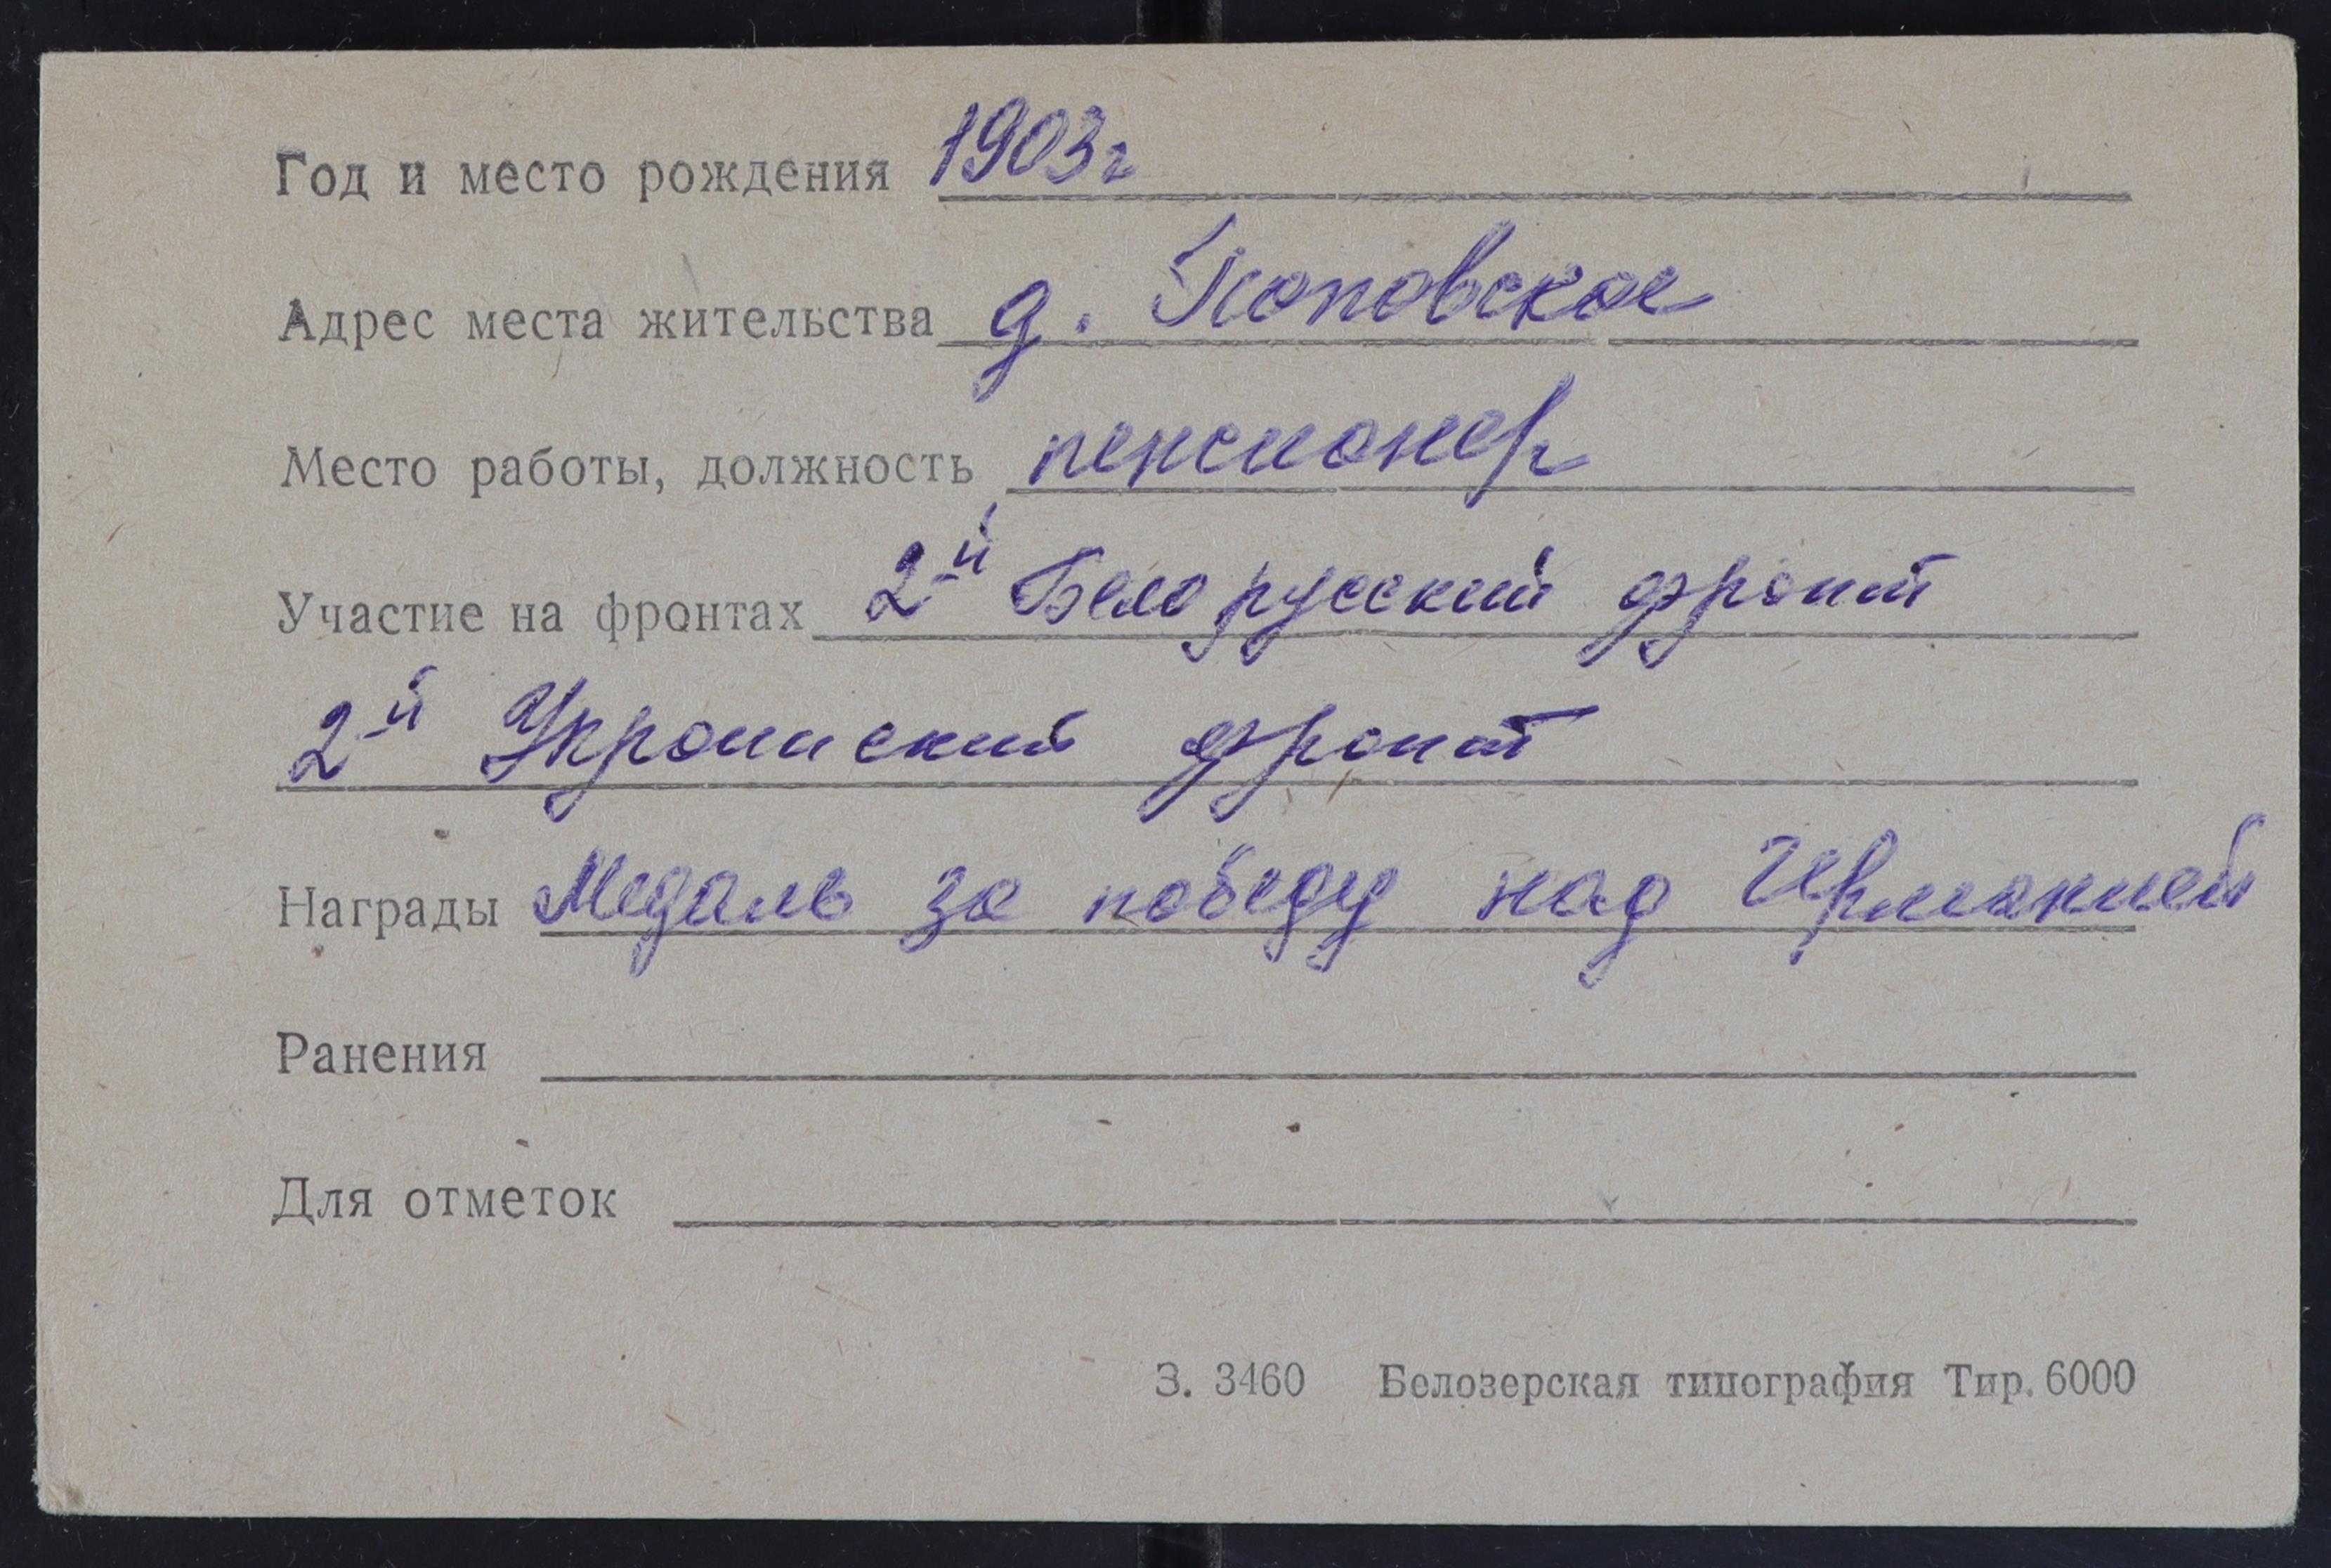 Год и место рождения 1903г
Адрес места жительства д. Поповское
Место работы, должность пенсионер
Участие на фронтах 2-й Белорусский фронт
2-й Украинский фронт
Награды Медаль за победу над Германией
Ранения
Для отметок
З. 3460 Белозерская типография Тир. 6000